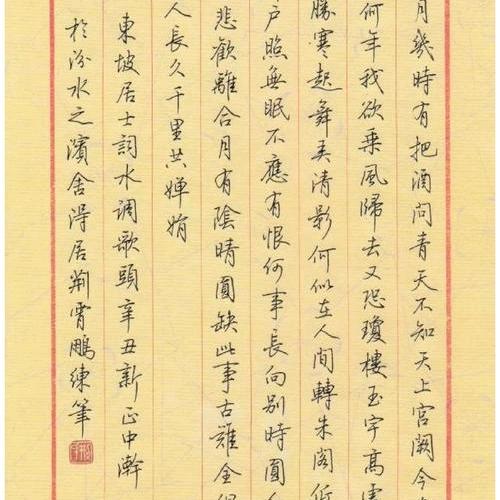 月幾時有把酒問青天不知天上宮闕今
何年我欲乘風歸去又恐瓊樓玉宇高處
勝寒起舞弄清影何似在人間轉朱閣低
戶照無眠不應有恨何事長向別時圓人
悲歡離合月有陰晴圓缺此事古難全但
人長久千里共嬋娟
東坡居士詞水調歌頭辛丑新正中澣
於汾水之濱舍得居荊霄鵬練筆